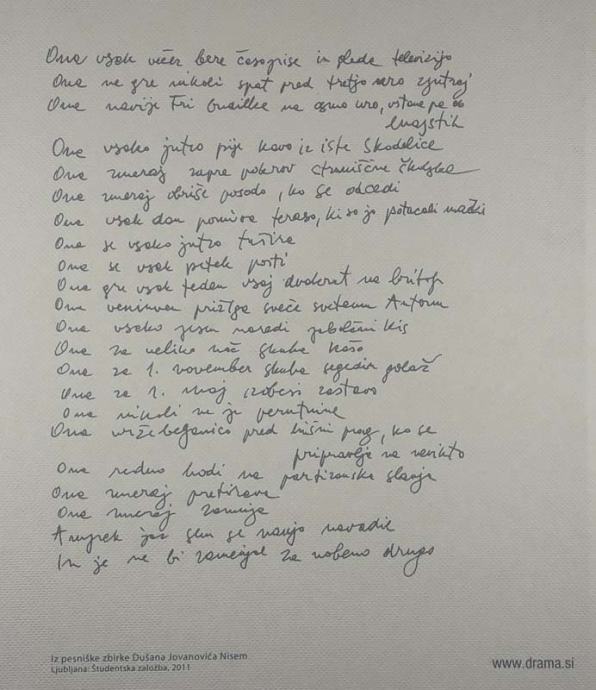 Ona vsak večer bere časopise in gleda televizijo
Ona ne gre nikoli spat pred tretjo uro zjutraj
Ona navije tri budilke na osmo uro, vstane pa ob
enajstih
Ona vsako jutro pije kavo iz iste skodelice
Ona zmeraj zapre pokrov straniščne školjke
Ona zmeraj obriše posodo, ko se odcedi
Ona vsak dan pomiva teraso, ki so jo potacali mački
Ona se vsako jutro tušira
Ona se vsak petek posti
Ona gre vsak teden vsaj dvakrat na britof
Ona venomer prižiga sveče svetemu Antonu
Ona vsako jesen naredi jabolčni kis
Ona za veliko noč skuha kašo
Ona za 1. november skuha segedin golaž
Ona za 1. maj izobesi zastavo
Ona nikoli ne je perutnine
Ona vrže beganico pred hišni prag, ko se
pripravlja na nevihto
Ona redno hodi na partizanska slavja
Ona zmeraj pretirava
Ona zmeraj zamuja
Ampak jaz sem se nanjo navadil
In je ne bi zamenjal za nobeno drugo
Iz pesniške zbirke Dušana Jovanovića Nisem.
Ljubljana: Študentska založba, 2011
www.drama.si